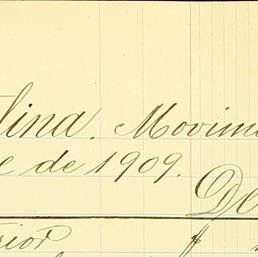 lina. Movim
e de 1909.
De
rior